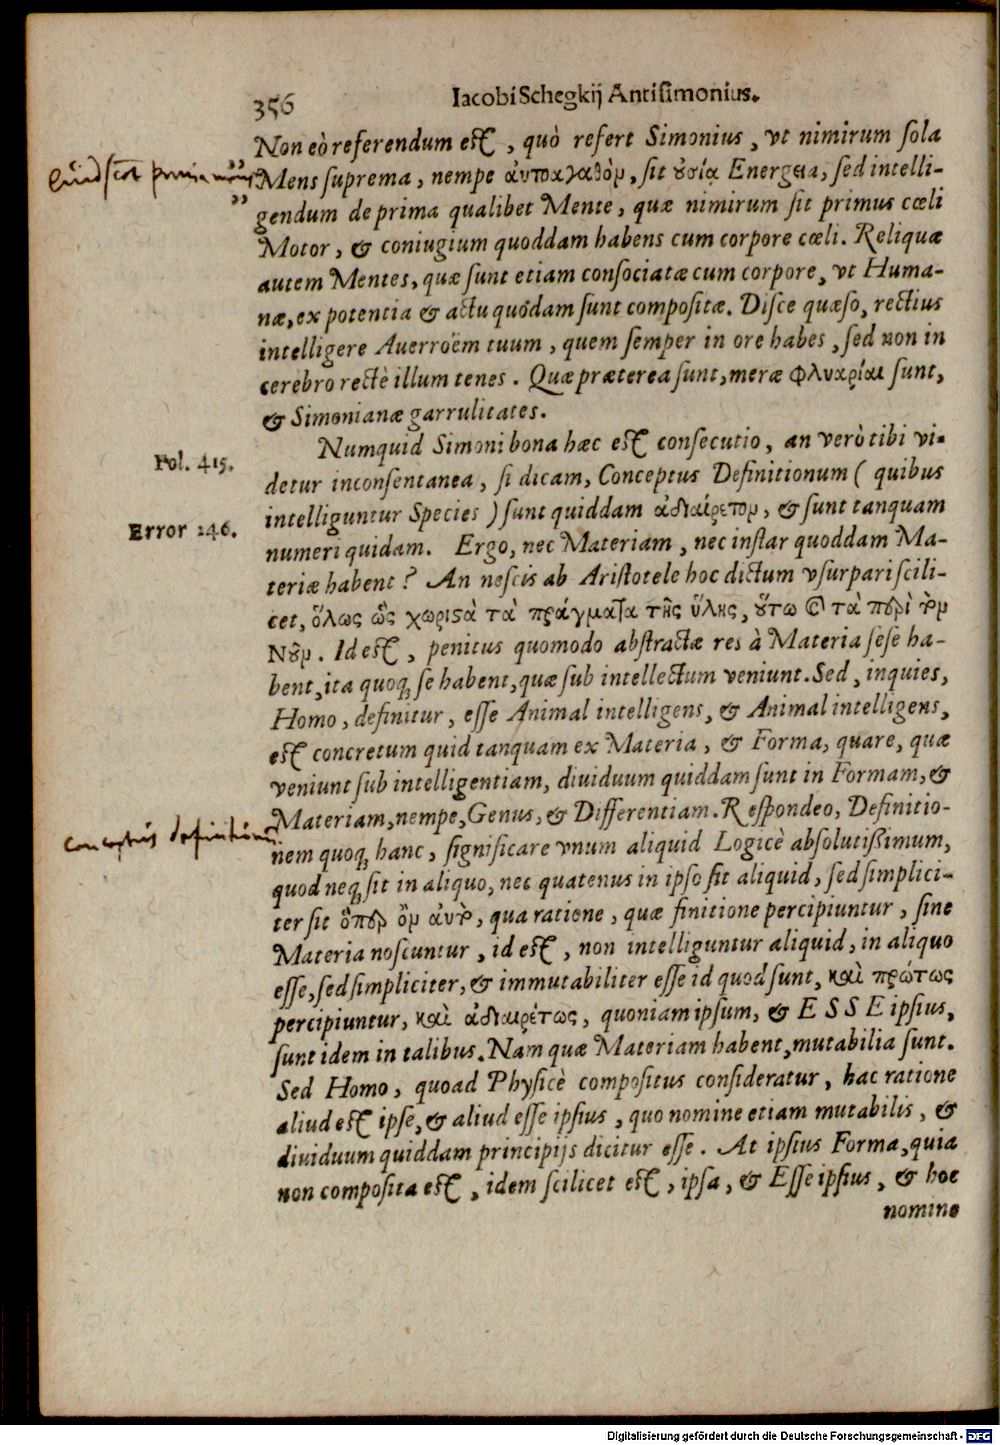 356 Iacobi Schegkij Antisimonius.
Non eò referendum est, quò refert Simonius, vt nimirum sola
„ Mens suprema, nempe ἀυτοαγαθὸν, sit ȣ̓σίᾳ Energeia, sed intelli-
„ gendum de prima qualibet Mente, quæ nimirum sit primus cœli
Motor, & coniugium quoddam habens cum corpore cœli. Reliquæ
autem Mentes, quæ sunt etiam consociatæ cum corpore, vt Huma-
næ, ex potentia & actu quodam sunt compositæ. Disce quæso, rectius
intelligere Auerroëm tuum, quem semper in ore habes, sed non in
cerebro rectè illum tenes. Quæ præterea sunt, meræ φλυαρίαι sunt,
& Simonianæ garrulitates.
Numquid Simoni bona hæc est consecutio, an verò tibi vi-
Fol. 415.
detur inconsentanea, si dicam, Conceptus Definitionum (quibus
intelliguntur Species) sunt quiddam ἀδιαίρετον, & sunt tanquam
Error 246.
numeri quidam. Ergo, nec Materiam, nec instar quoddam Ma-
teriæ habent? An nescis ab Aristotele hoc dictum vsurpari scili-
cet, ὅλως ὡς χωριϛὰ τὰ πράγματα τῆς ὕλης, ȣ̔́τω καὶ τὰ περὶ τὸν
Νȣ̃ν. Id est, penitus quomodo abstractæ res à Materia sese ha-
bent, ita quoq; se habent, quæ sub intellectum veniunt. Sed, inquies,
Homo, definitur, esse Animal intelligens, & Animal intelligens,
est concretum quid tanquam ex Materia, & Forma, quare, quæ
veniunt sub intelligentiam, diuiduum quiddam sunt in Formam, &
Materiam, nempe, Genus, & Differentiam. Respondeo, Definitio-
conceptus definitionum
nem quoq; hanc, significare vnum aliquid Logicè absolutißimum,
quod neq; sit in aliquo, nec quatenus in ipso sit aliquid, sed simplici-
ter sit ὅπερ ὂν ἀυτὸ, qua ratione, quæ finitione percipiuntur, sine
Materia noscuntur, id est, non intelliguntur aliquid, in aliquo
esse, sed simpliciter, & immutabiliter esse id quod sunt, καὶ πρώτως
percipiuntur, καὶ ἀδιαιρέτως, quoniam ipsum, & ESSE ipsius,
sunt idem in talibus. Nam quæ Materiam habent, mutabilia sunt.
Sed Homo, quoad Physicè compositus consideratur, hac ratione
aliud est ipse, & aliud esse ipsius, quo nomine etiam mutabilis, &
diuiduum quiddam principijs dicitur esse. At ipsius Forma, quia
non composita est, idem scilicet est, ipsa, & Esse ipsius, & hoc
nomine
Digitalisierung gefördert durch die Deutsche Forschungsgemeinschaft - DFG